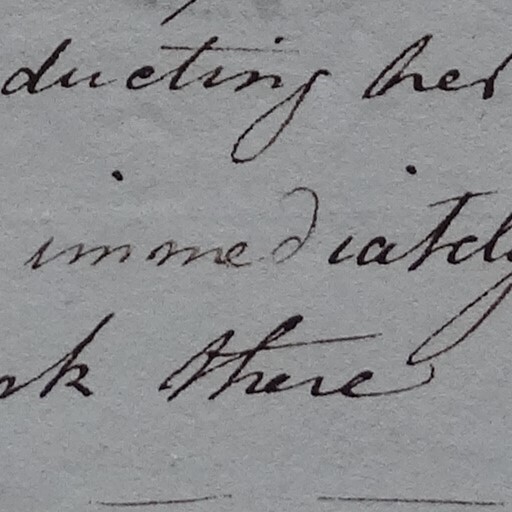 ducting her
immediately
rk there